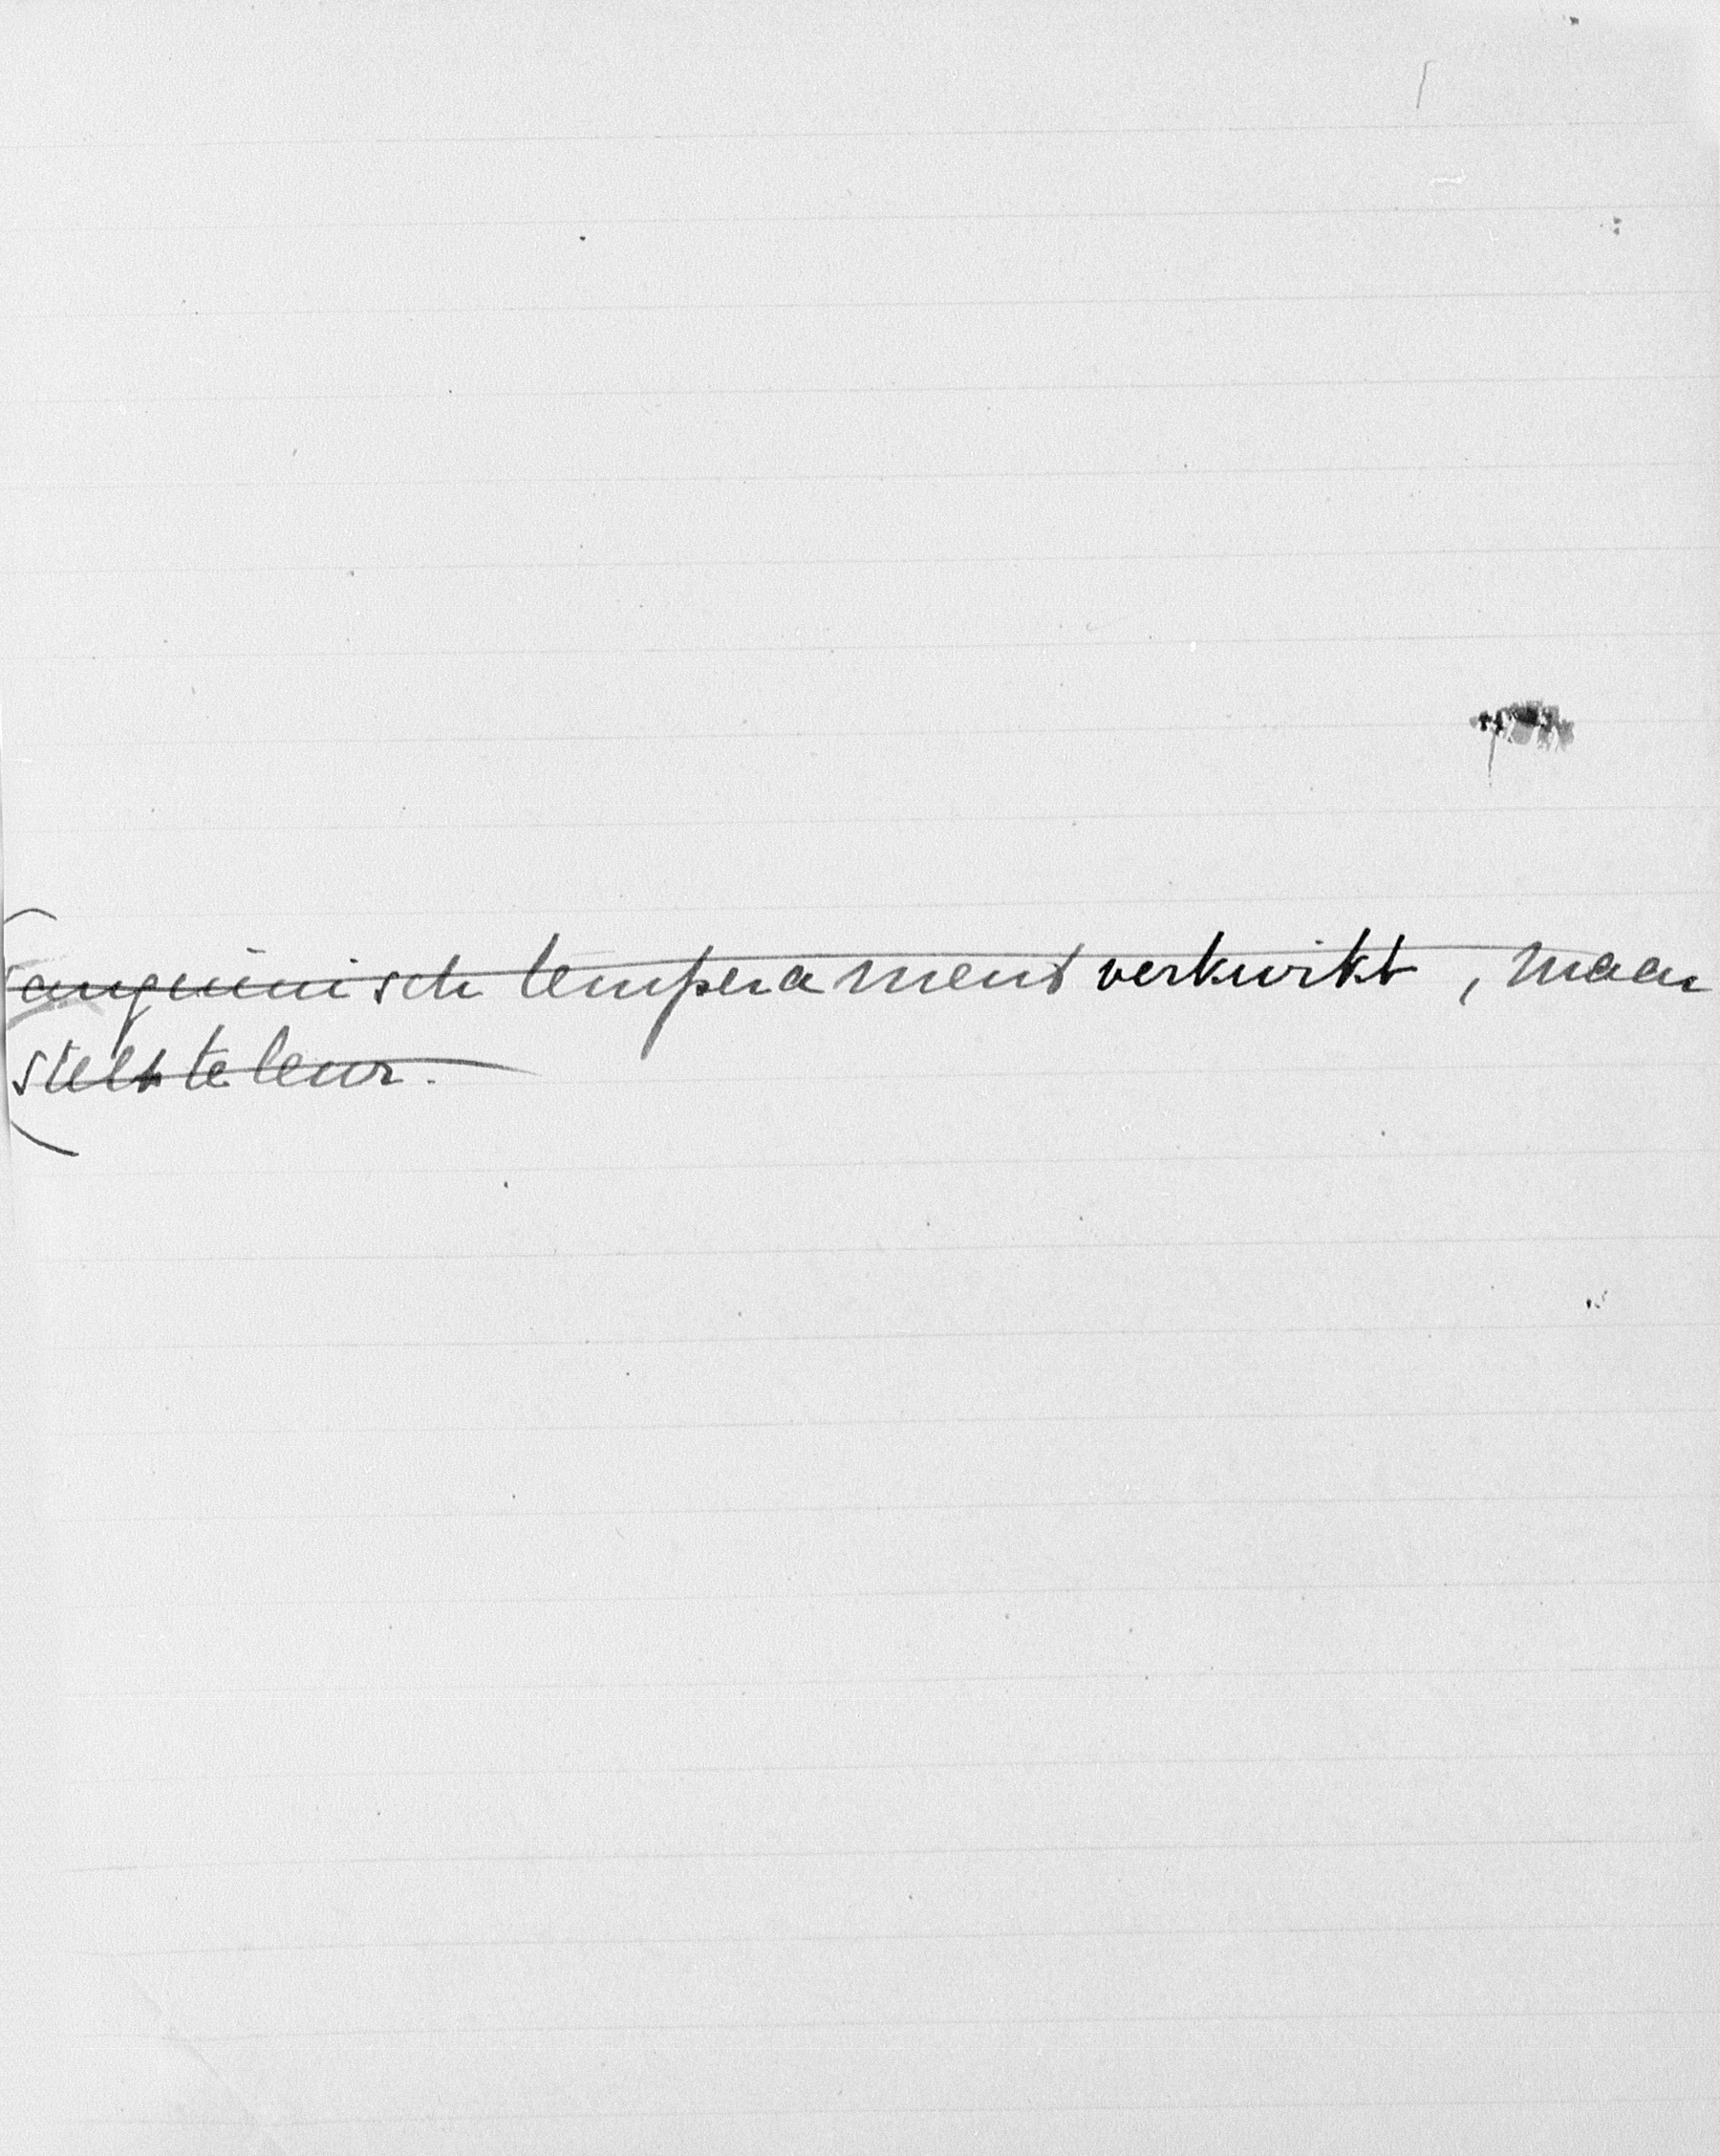 sanguinisch temperament verkwikt, maar
stelt te leur.